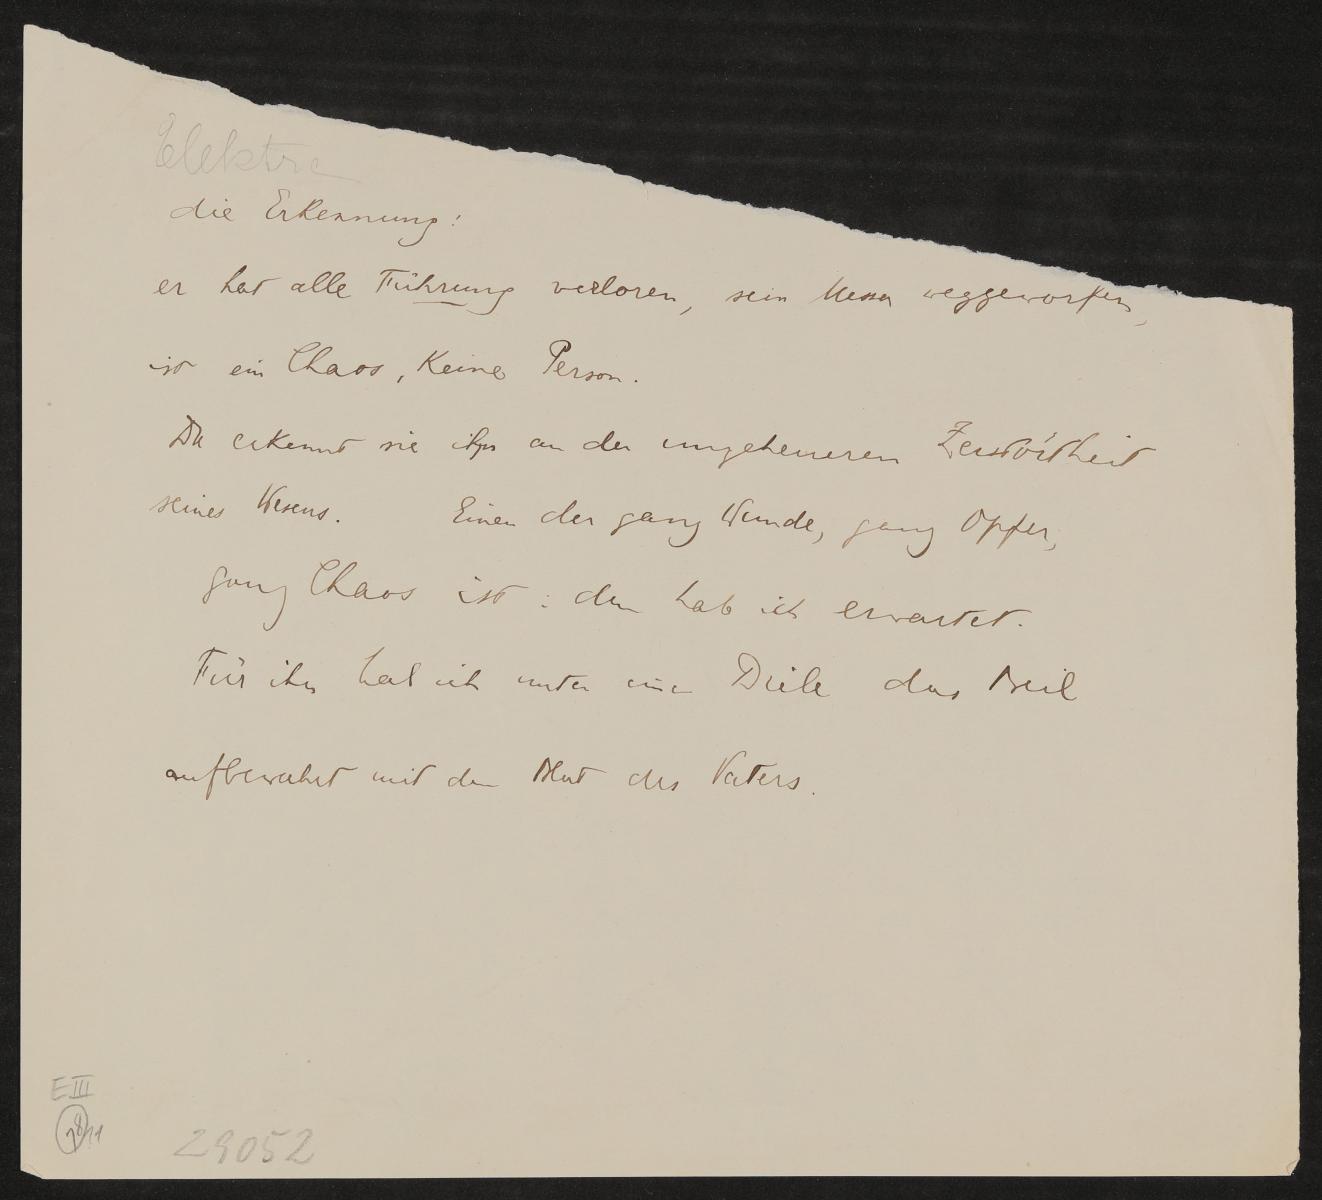 Elektra
die Erkennung:
er hat alle Führung verloren, sein Messer weggeworfen,
ist ein Chaos, keine Person.
Da erkennt sie ihn an der ungeheueren Zerstörtheit
seines Wesens. Einen der ganz Wunde, ganz Opfer,
ganz Chaos ist: den hab ich erwartet.
Für ihn hab ich unter einer Diele das Beil
aufbewahrt mit dem Blut des Vaters.
E III
29052